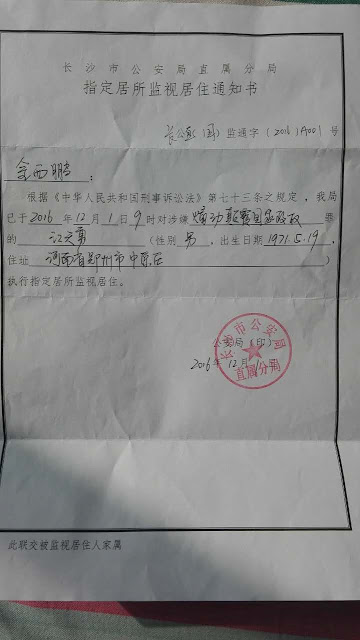 长沙市公安局直属分局
指定居所监视居住通知书
长公直(国)监通字(2016)A001号
金西鹏:
根据《中华人民共和国刑事诉讼法》第七十三条之规定,我局
已于2016年12月1日9时对涉嫌煽动颠覆国家政权罪
的江天勇(性别男,出生日期1971.5.19,
住址河南省郑州市中原区)
执行指定居所监视居住。
公安局(印)
2016年12月
长沙市公安局
直属分局
此联交被监视居住人家属